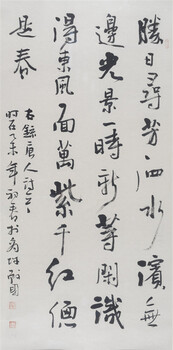 勝日尋芳泗水濱無
邊光景一時新等閒識
得東風面萬紫千紅總
是春
右錄唐人詩
年初春於